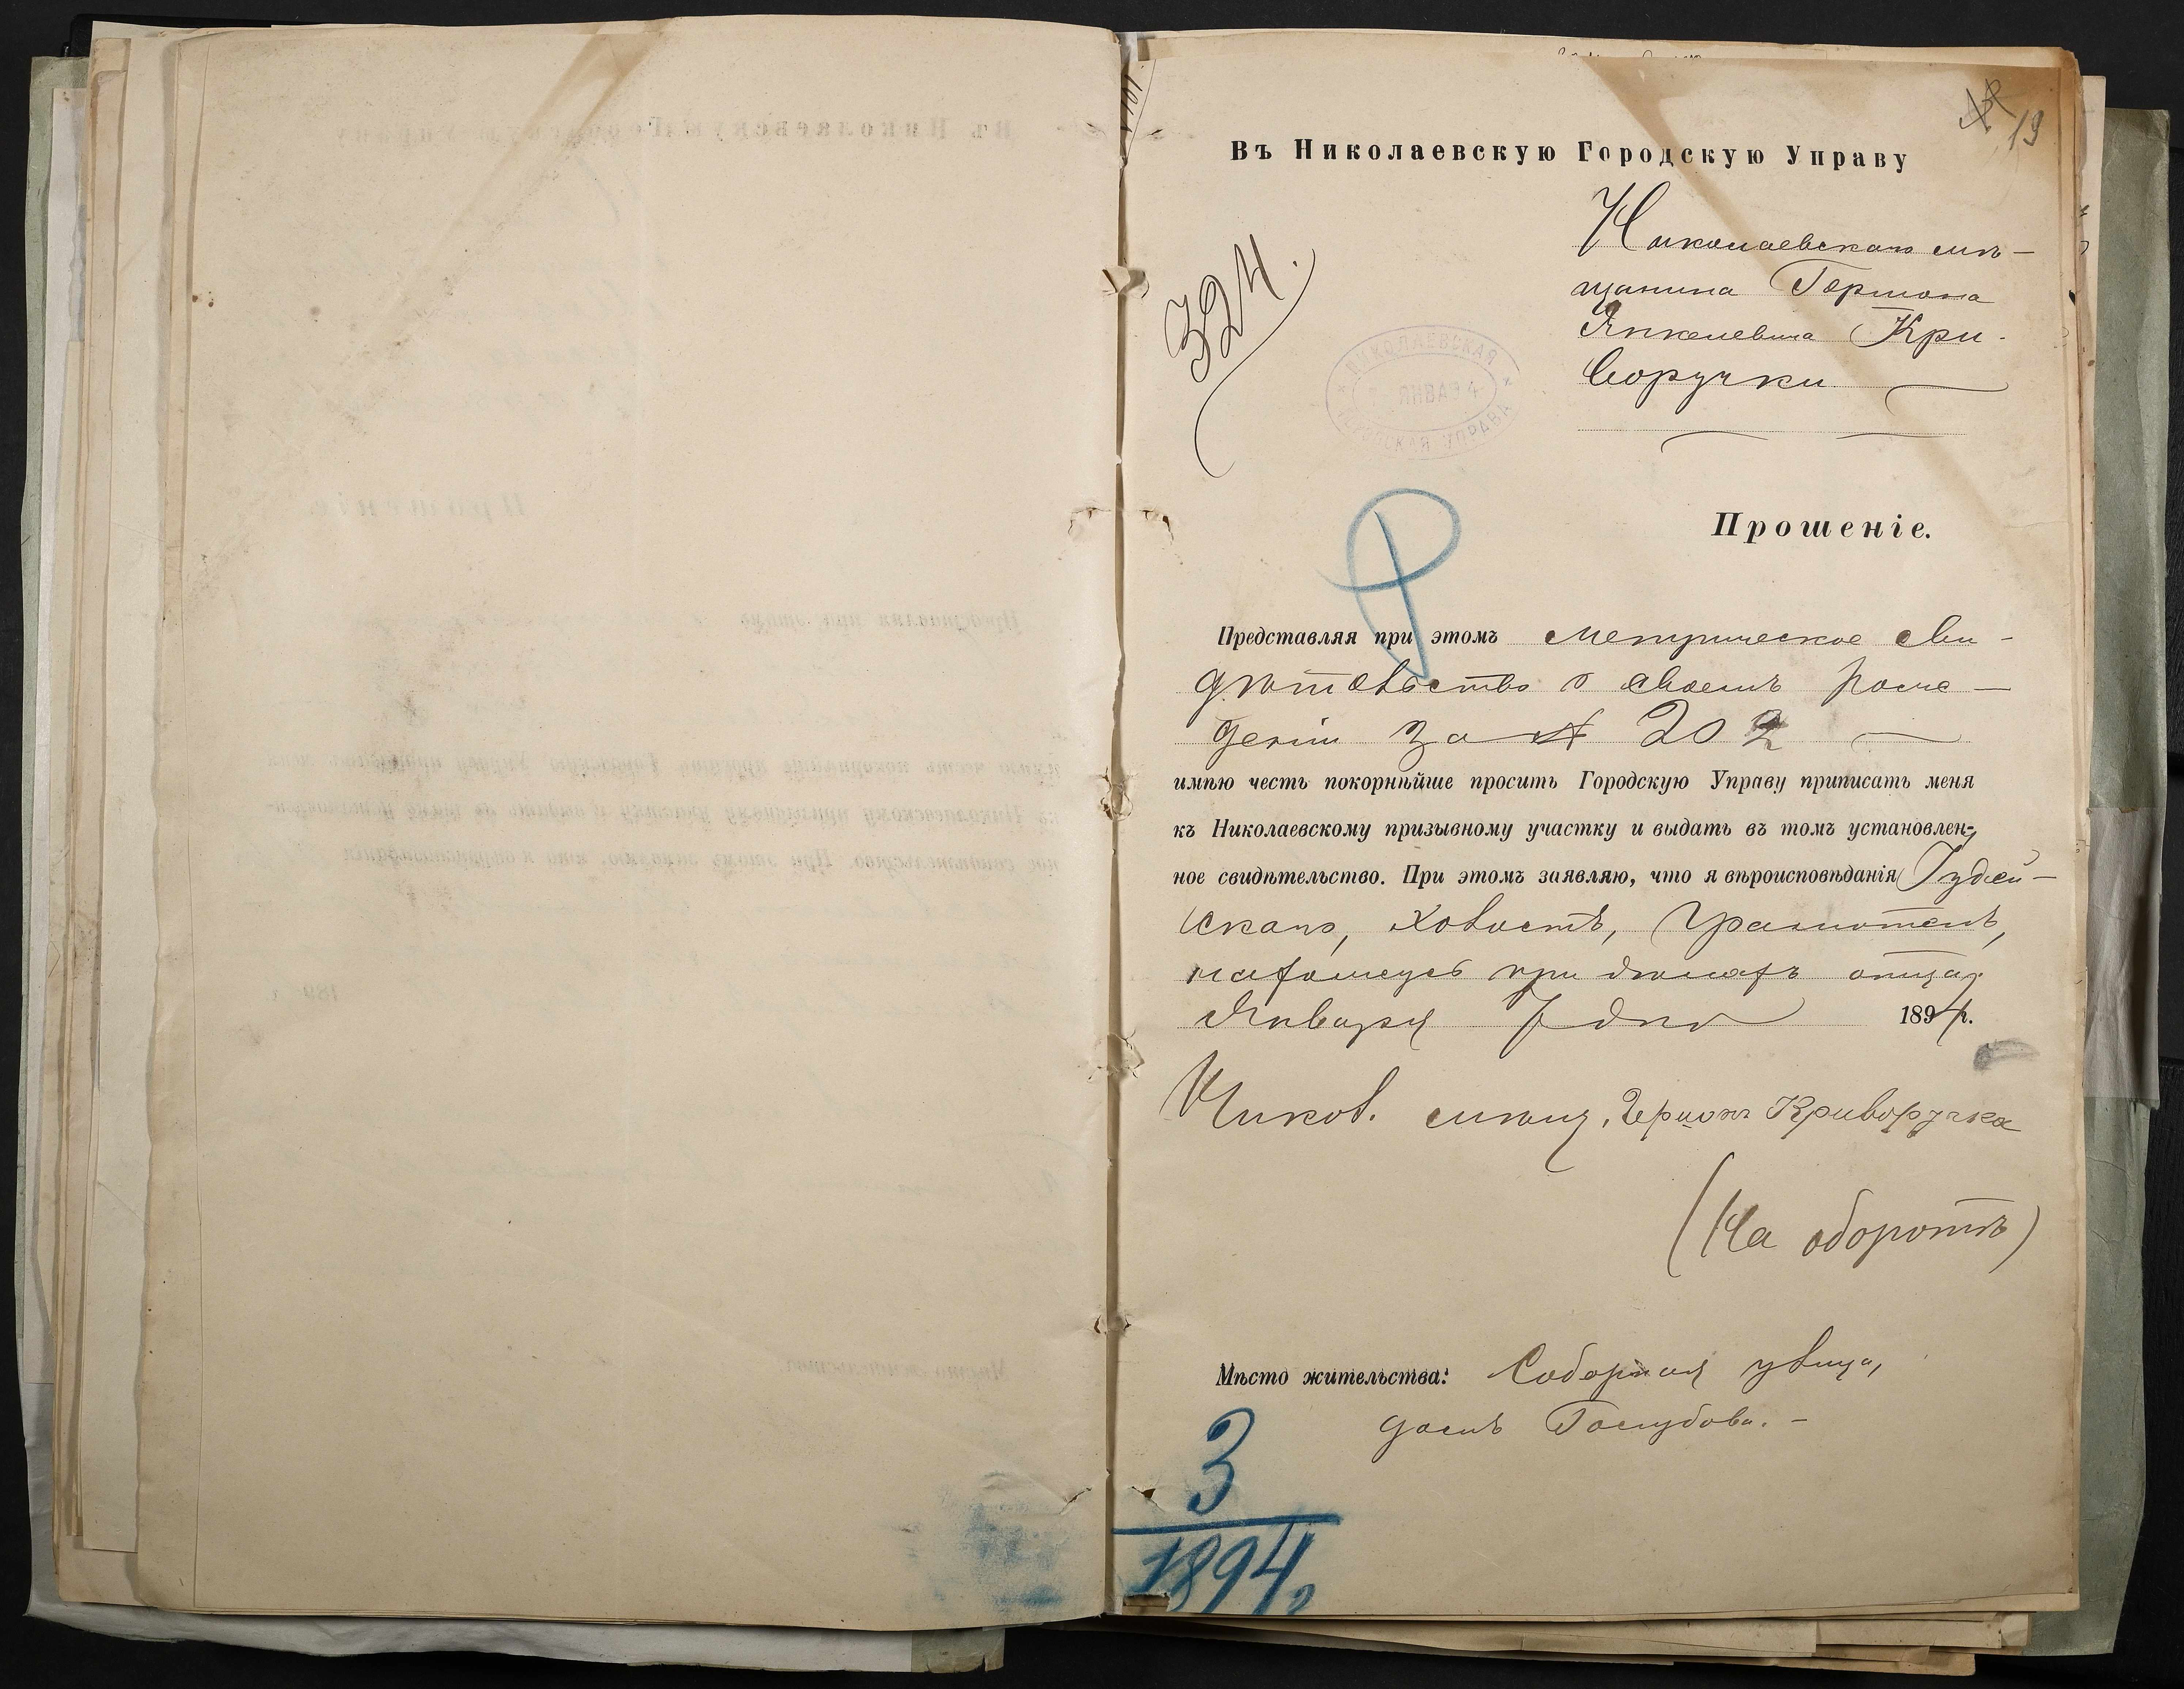 19
Въ Николаевскую Городскую Управу
Николаевскаго мѣ-
щанина Гершона
Янкелевича Кри-
воручки
324.
НИКОЛАЕВСКАЯ
ЯНВА 94
ГОРОДСКАЯ УПРАВА
Прошеніе.
Представляя при этомъ метрическое сви-
дѣтельство о своемъ рож-
деніи за № 202
имѣю честь покорнѣйше просить Городскую Управу приписать меня
къ Николаевскому призывному участку и выдать въ томъ установлен-
ное свидѣтельство. При этомъ заявляю, что я вѣроисповѣданія Іудей-
скаго, холостъ, грамотенъ,
нахожусь при отца.
Января 7 дня 1894 г.
Никол. мѣщ. Гершонъ Криворучка
(На оборотѣ)
Мѣсто жительства: Соборная улица,
домъ Голубова. -
3
1894 г